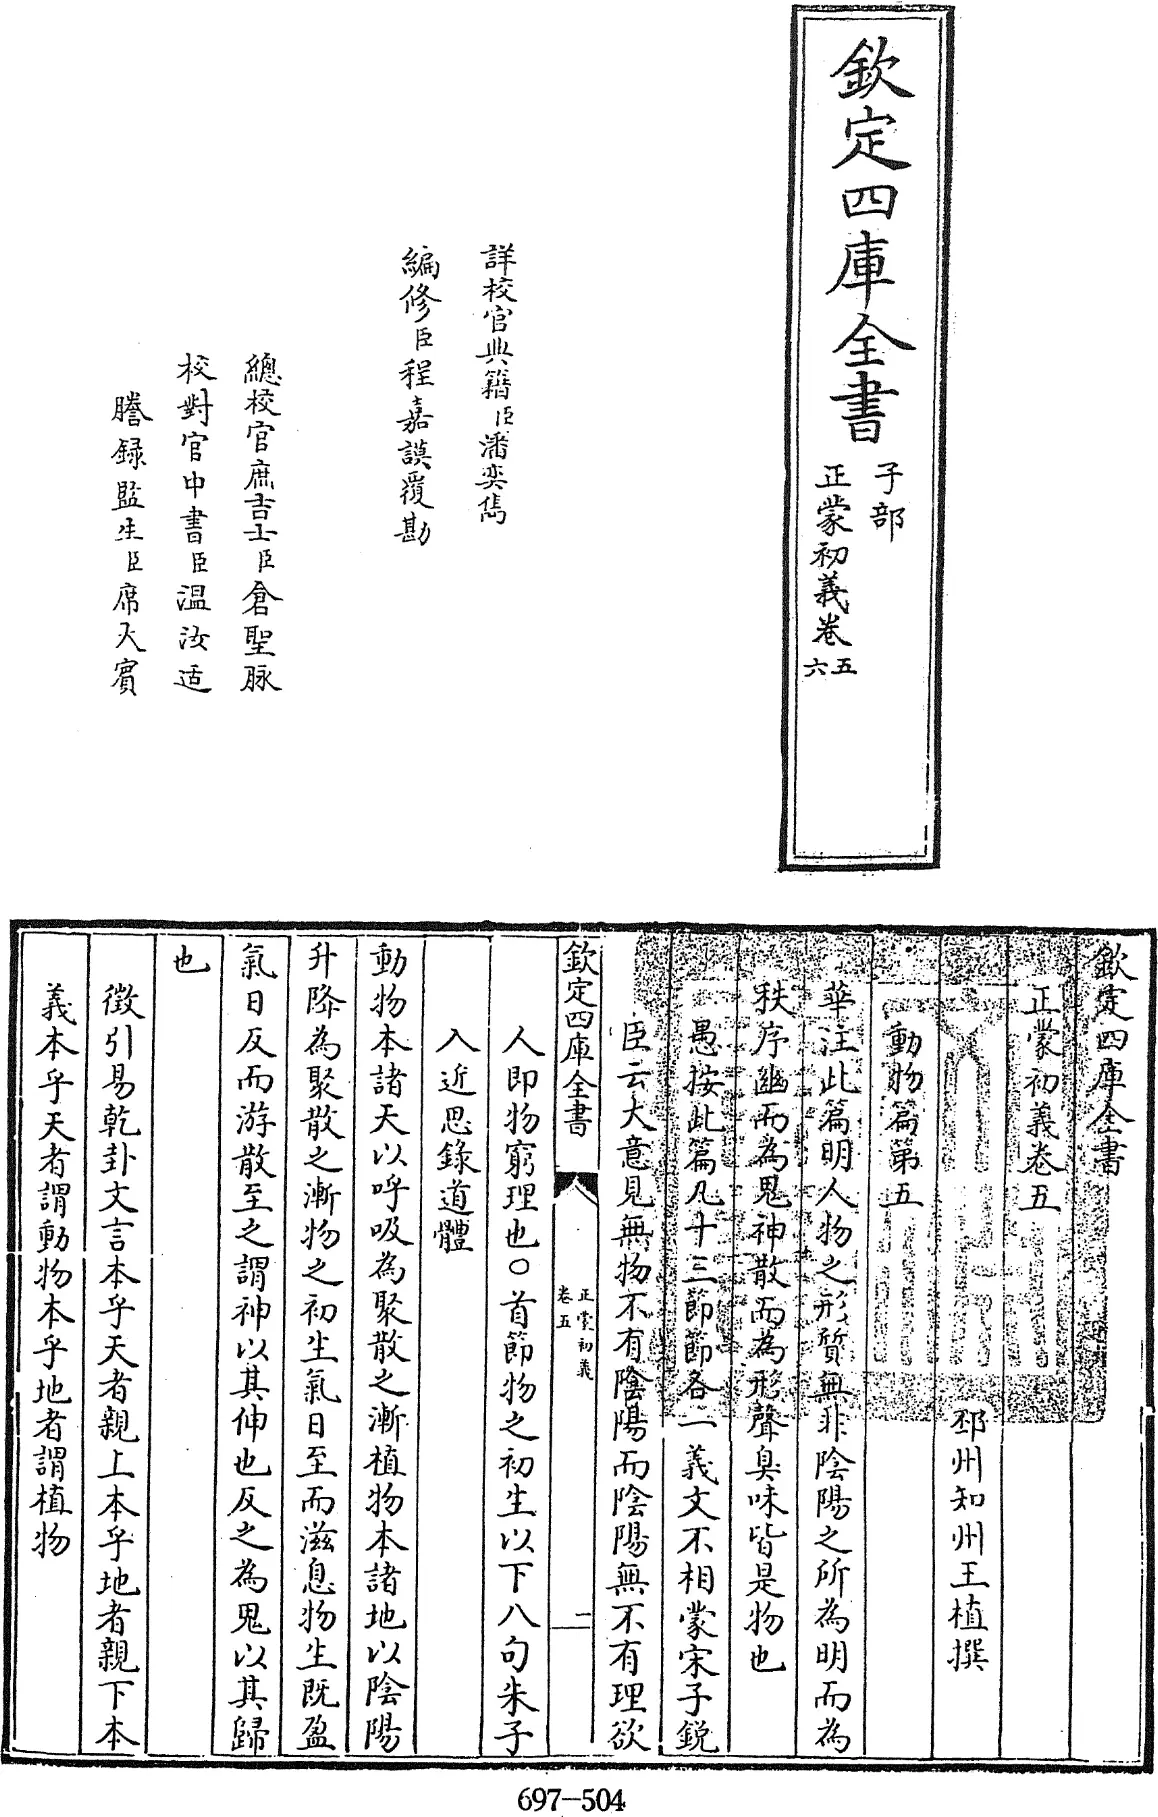 欽定四庫全書
子部
正蒙初義卷
五
六
詳校官典籍臣潘奕雋
編修臣程嘉謨覆勘
總校官庶吉士臣倉聖脉
校對官中書臣溫汝适
謄録監生臣席大賓
欽定四庫全書
正蒙初義卷五
邳州知州王植撰
動物篇第五
華注此篇明人物之形質無非陰陽之所為明而為
秩序幽而為鬼神散而為形聲臭味皆是物也
愚按此篇凡十三節節各一義文不相蒙宋子鋭
臣云大意見無物不有陰陽而陰陽無不有理欲
欽定四庫全書
正蒙初義
卷五
二
人即物窮理也○首節物之初生以下八句朱子
入近思錄道體
動物本諸天以呼吸為聚散之漸植物本諸地以陰陽
升降為聚散之漸物之初生氣日至而滋息物生既盈
氣日反而游散至之謂神以其伸也反之為鬼以其歸
也
徵引易乾卦文言本乎天者親上本乎地者親下本
義本乎天者謂動物本乎地者謂植物
697-504